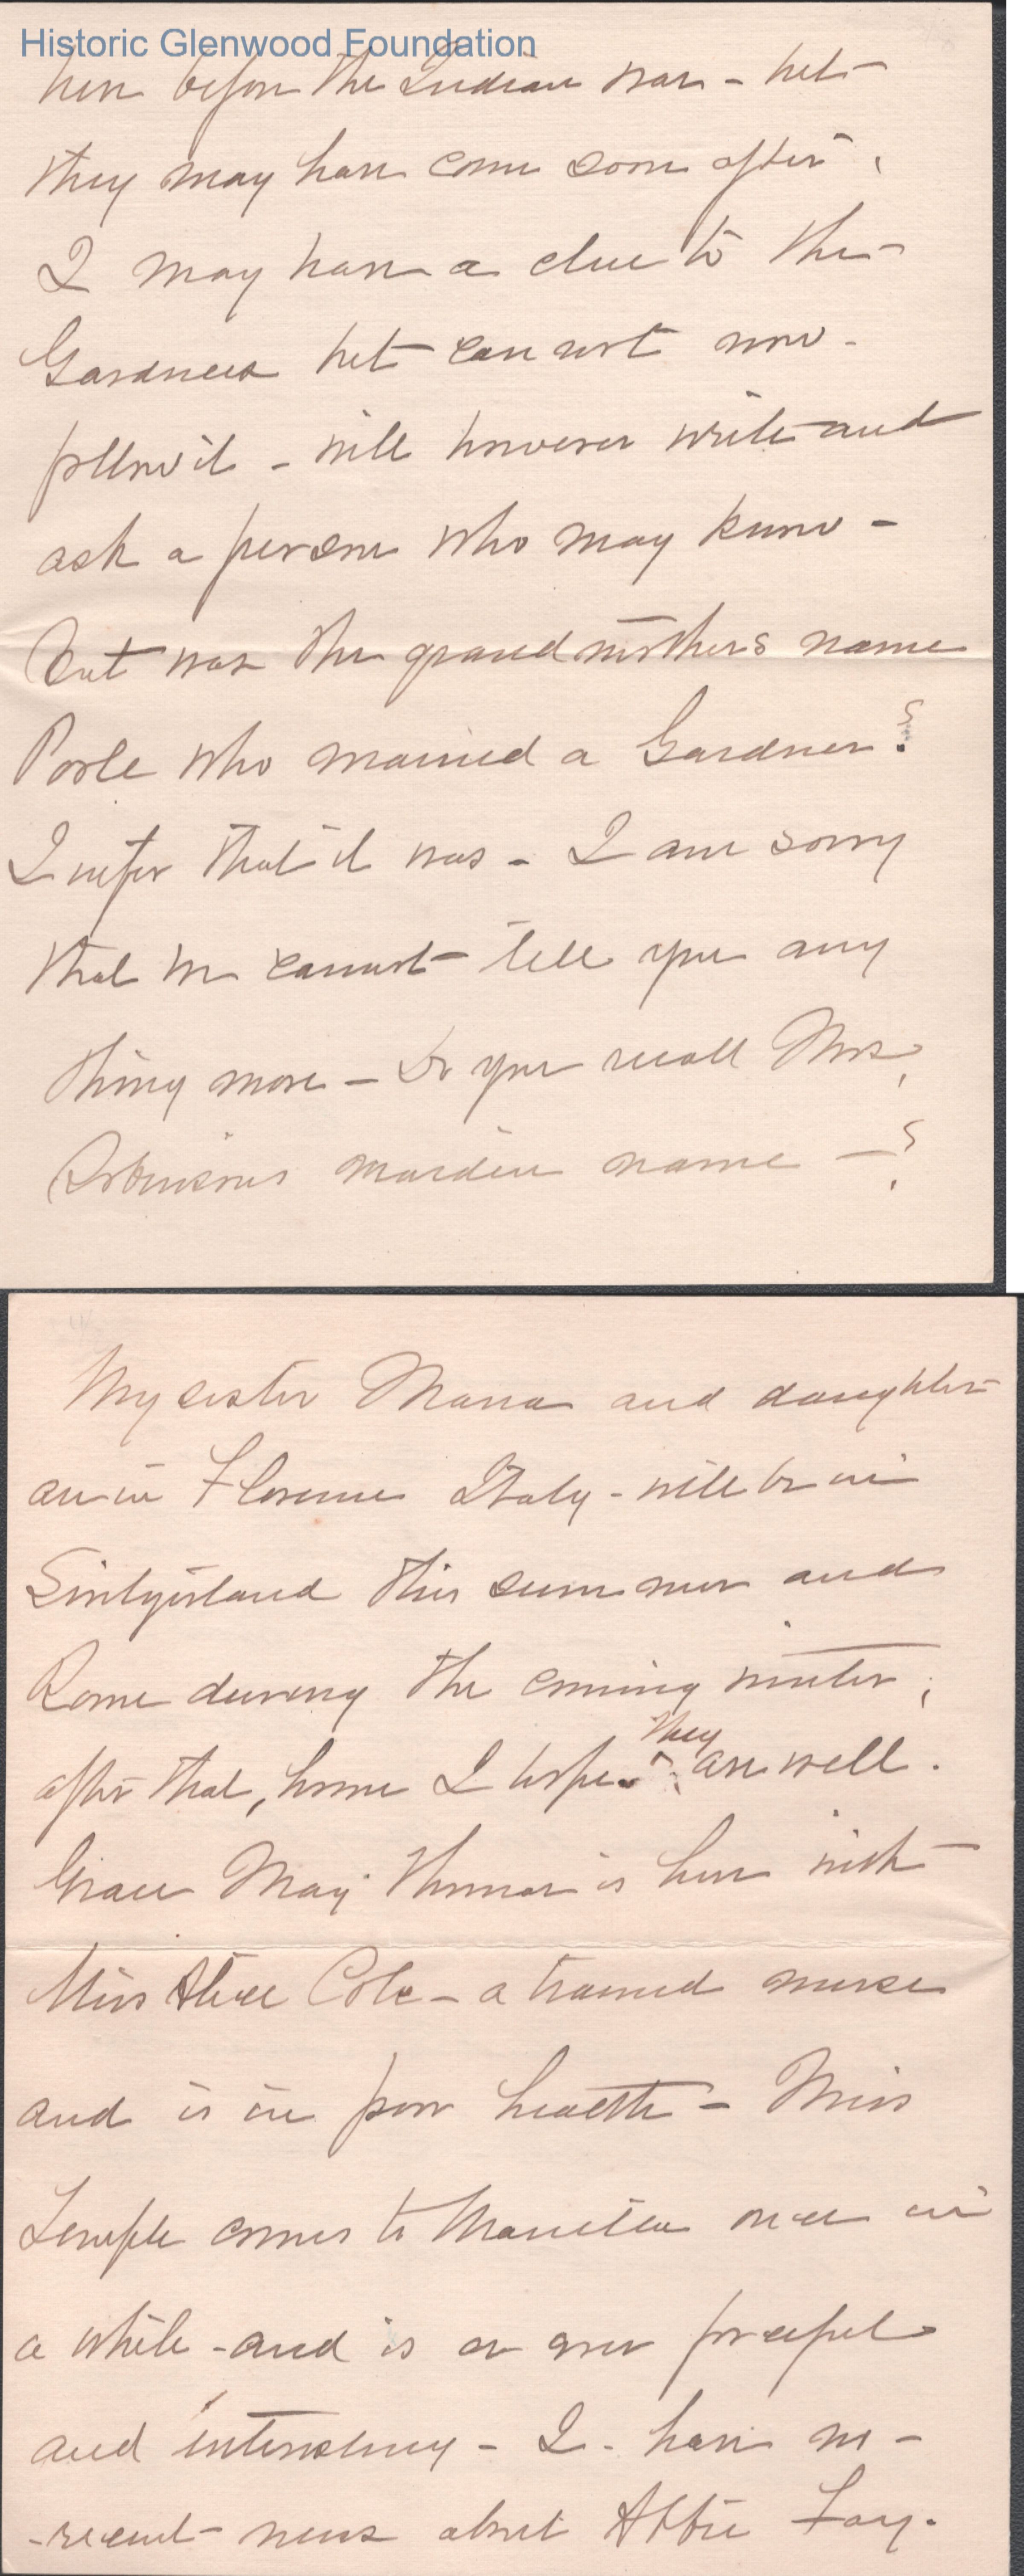 Historic Glenwood Foundation
here before the Indian war - but
they may have come soon after.
I may have a clue to the
Gardners but can not now -
follow it - will however write and
ask a person who may know -
But was the grandmothers name
Poole who married a Gardner?
I infer that it was - I am sorry
that we cannot tell you any
thing more - Do you recall Mrs.
Robinsons maiden name - ?
My sister Maria and daughter
are in Florence Italy - will be in
Switzerland this summer and
Rome during the coming winter;
after that, home I hope. they are well.
Grace May Thomas is here with
Miss Alice Cole - a trained nurse
and is in poor health - Miss
Temple comes to Manitou once in
a while - and is as ever forceful
and interesting - I have no -
- recent news about Abbie Fay.